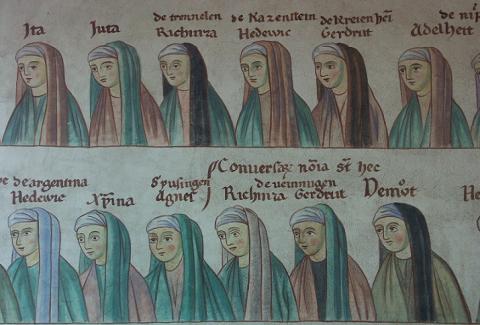 Ita
Juta
de trennelen
Richinza
de Kazenstein
Hedewic
de Kreien hei
Gerdrut
Adelheit
de argentina
Hedewic
Xpina
Spusingen
Agnes
Conversar noĩa st hec
de veinnugen
Richinza Gerdrut
Demǒt